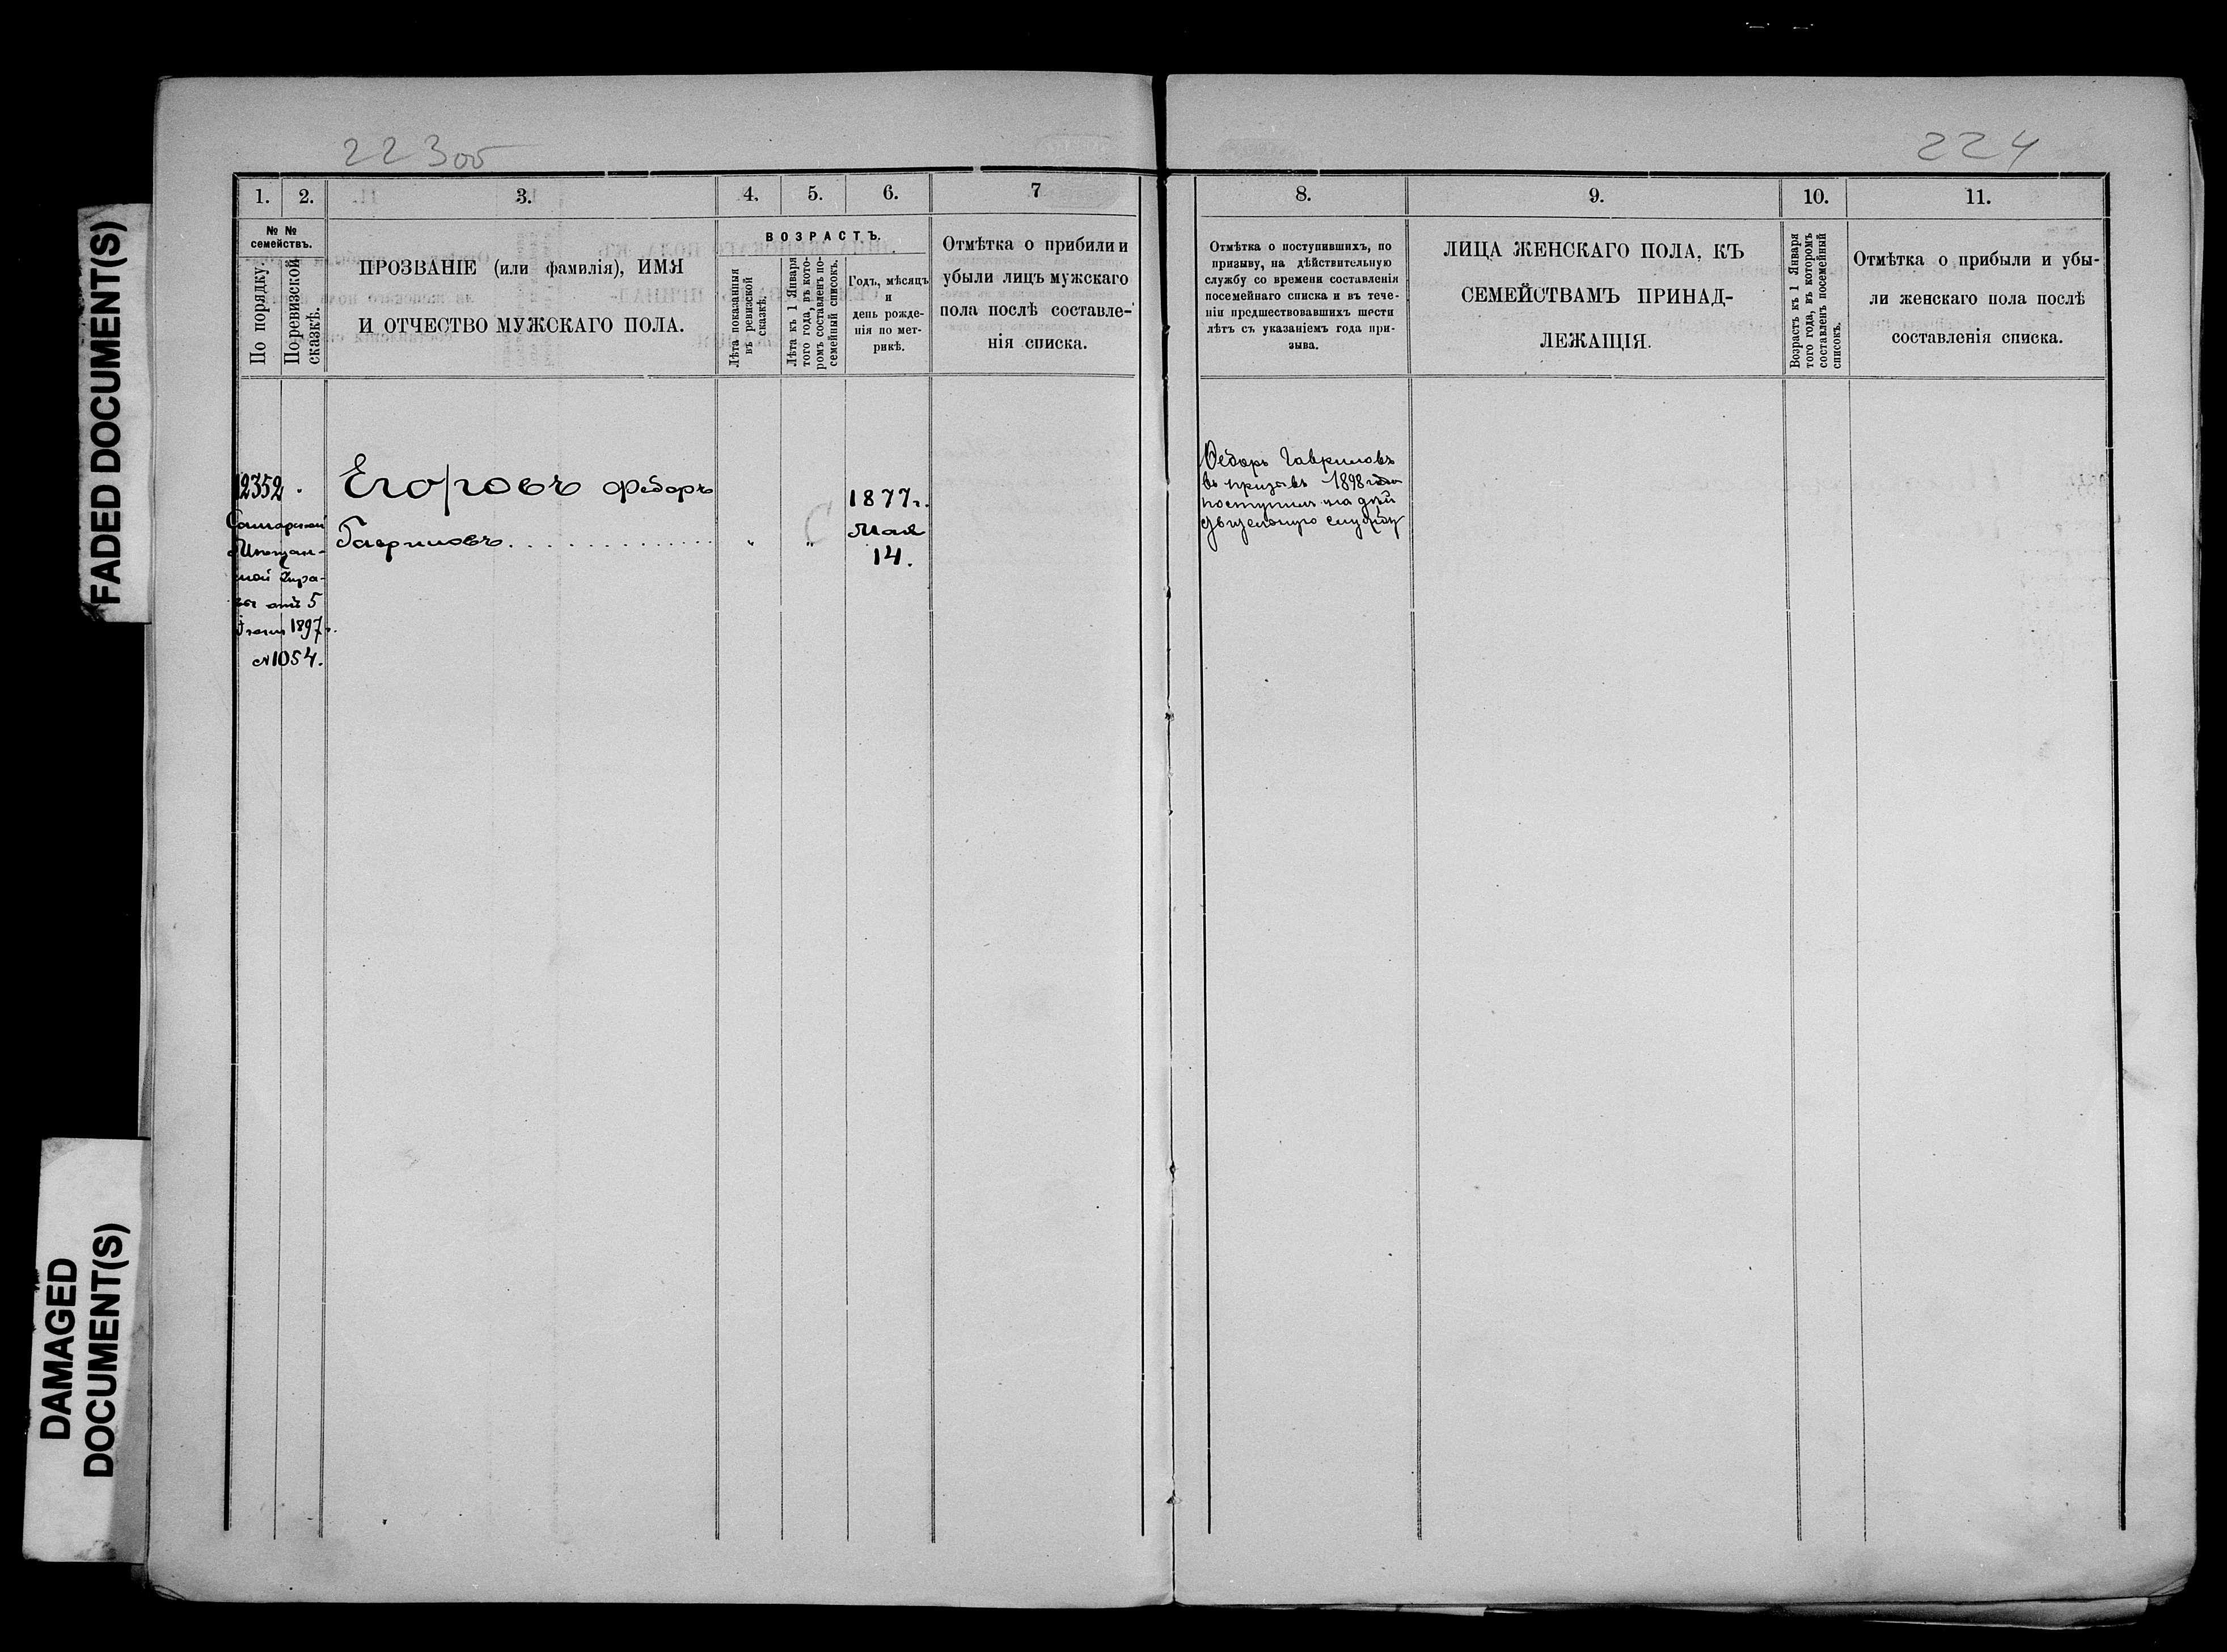 FADED DOCUMENT(S)
DAMAGED
DOCUMENT(S)
223об
1.
2.
3.
4.
5.
6.
7
№ №
семействъ.
По порядку.
По ревизской
сказкѣ.
ПРОЗВАНІЕ (или фамилія), ИМЯ
И ОТЧЕСТВО МУЖСКАГО ПОЛА.
ВОЗРАСТЪ.
Лѣта показанныя
въ ревизской
сказкѣ.
Лѣта къ 1 Января
того года, въ кото-
ромъ составленъ по-
семейный списокъ.
Годъ, мѣсяцъ
и
день рожде-
нія по мет-
рикѣ.
Отмѣтка о прибили и
убыли лицъ мужскаго
пола послѣ составле-
нія списка.
12352.
Самарской
Мѣщан-
ской Упра-
вы отъ 5
Іюня 1897 г.
№1054.
Егоровъ Федоръ
Гавриловъ
" "
1877 г.
Мая
14.
224
8.
9.
10.
11.
Отмѣтка о поступившихъ, по
призыву, на дѣйствительную
службу со времени составленія
посемейнаго списка и въ тече-
ніи предшествовавшихъ шести
лѣтъ съ указаніемъ года при-
зыва.
ЛИЦА ЖЕНСКАГО ПОЛА, КЪ
СЕМЕЙСТВАМЪ ПРИНАД-
ЛЕЖАЩІЯ.
Возрастъ къ 1 Января
того года, въ которомъ
составленъ посемейный
списокъ.
Отмѣтка о прибыли и убы-
ли женскаго пола послѣ
составленія списка.
Ѳедоръ Гавриловъ
въ призывъ 1898 года
поступилъ на дѣй
ствительную службу